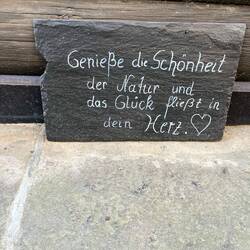 Genieße die Schönheit
der Natur und
das Glück fließt in
dein Herz. ♡